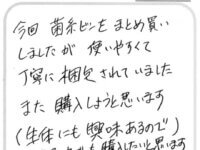 今回 菌糸ビンをまとめ買い
しましたが 使いやすくて
丁寧に梱包されていました
また 購入しようと思います
(生体にも興味あるので)
も購入したいと思います